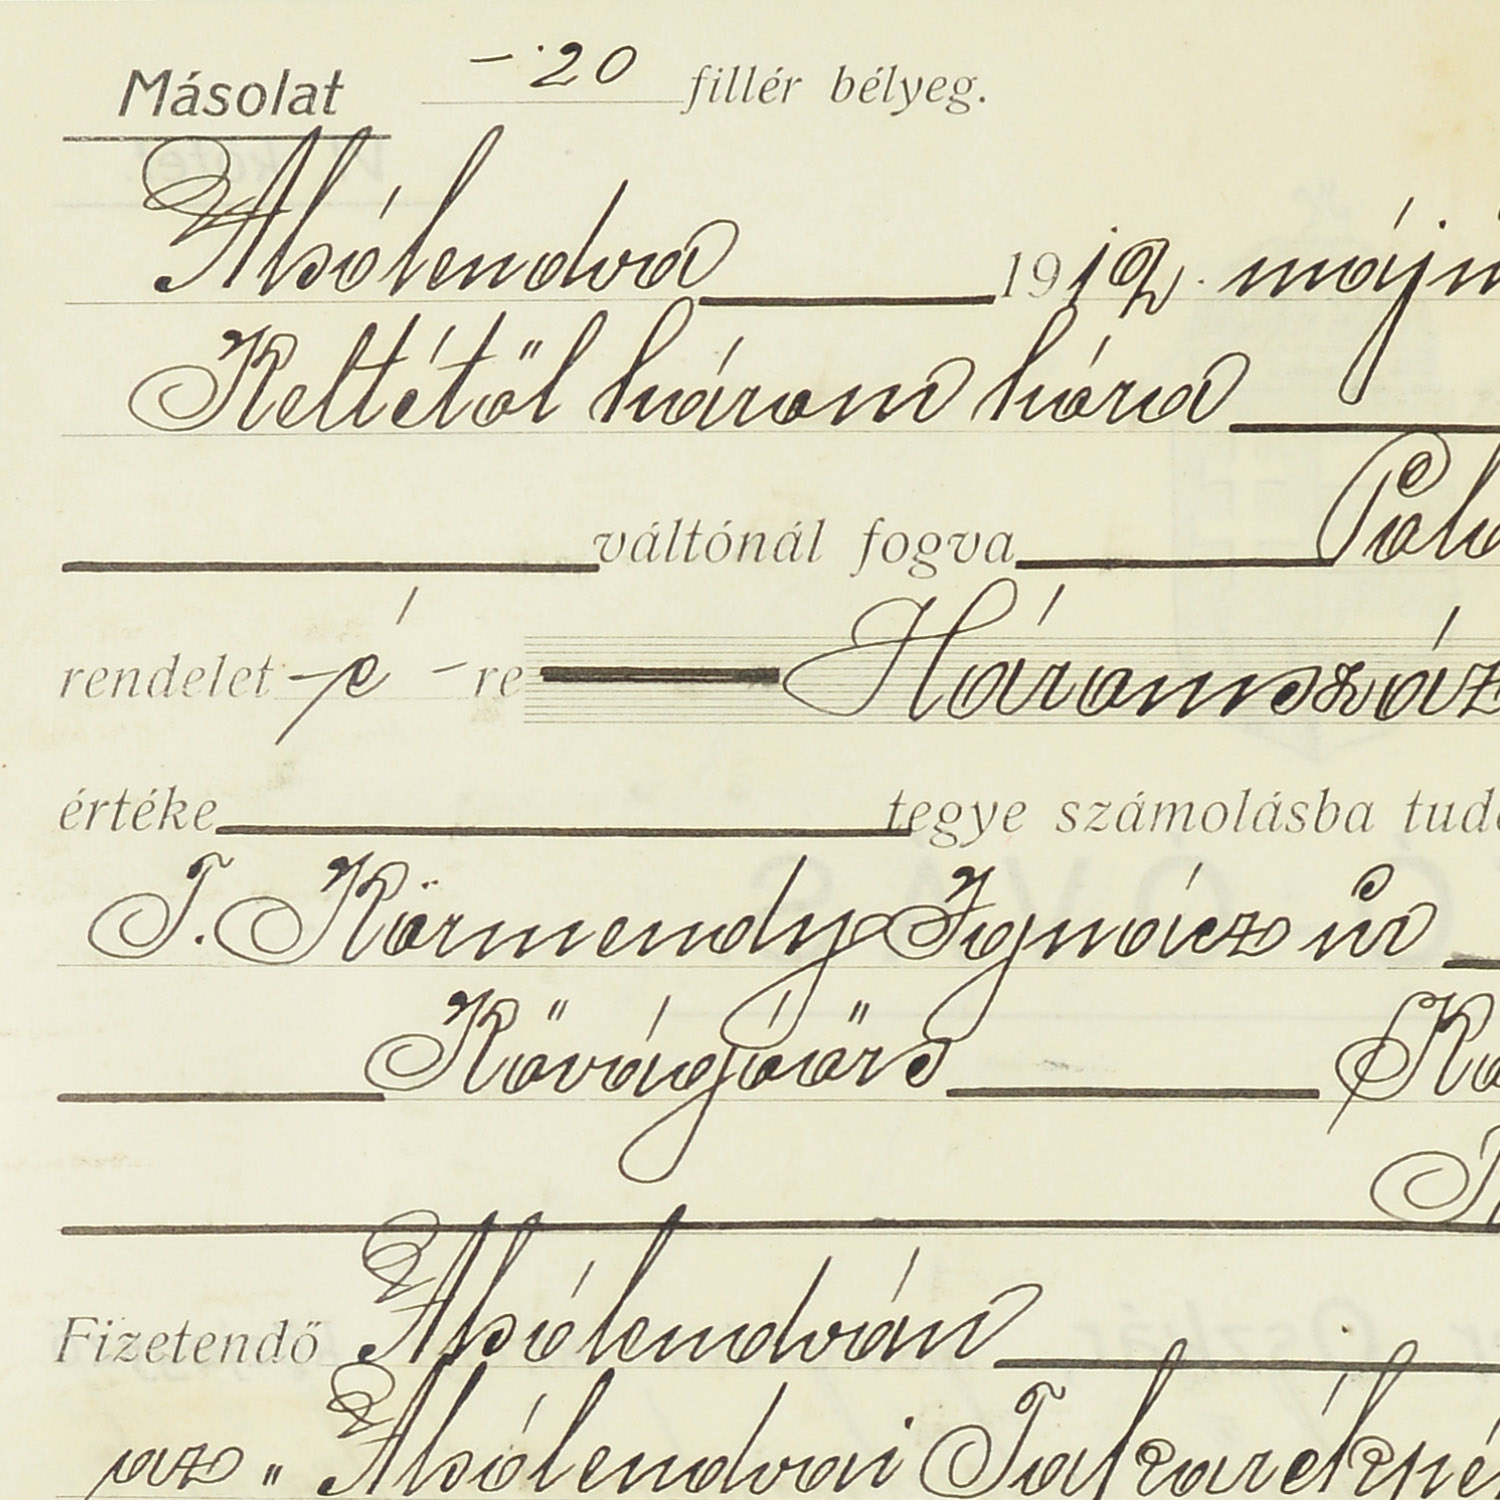 Másolat -·20 fillér bélyeg.
Alsólendva 1912. máju
Keltétől három hóra
váltónál fogva
rendelet -é -re Háromszáz
értéke tegye számolásba
T. Körmendy Ignácz úr
Kővágóörs
Fizetendő Alsólendván
az „Alsólendvai Takarékpé